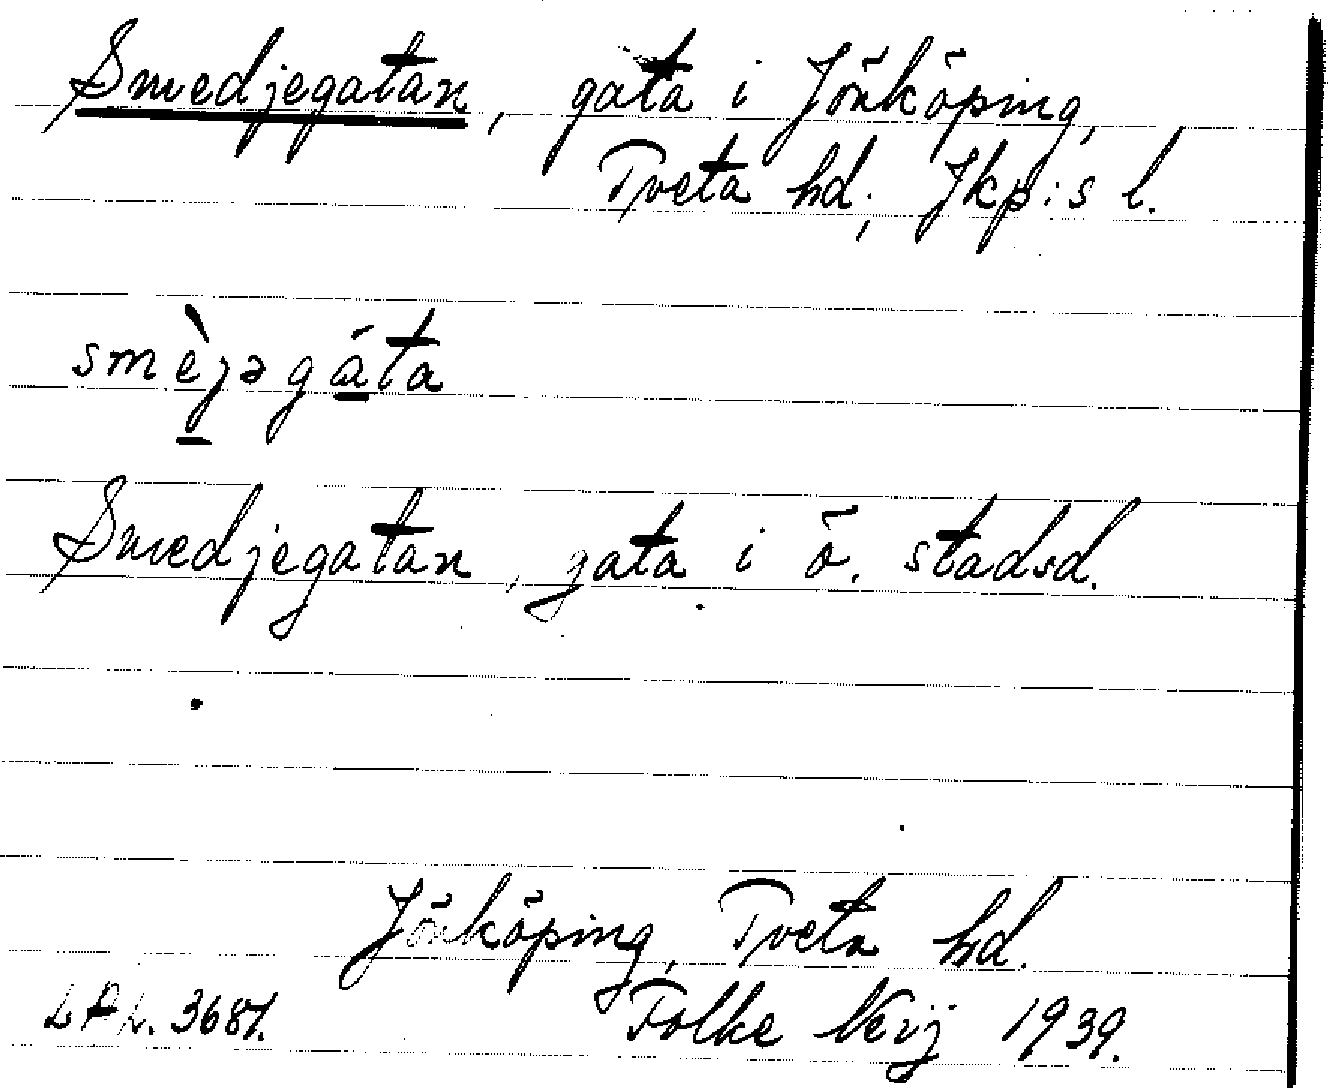 Smedjegatan, gata i Jönköping,
Tveta hd; Jkp:s l.
smèjəgáta
Smedjegatan, gata i ö. stadsd.
Jönköping, Tveta hd.
LAL. 3687. Folke Neij 1939.